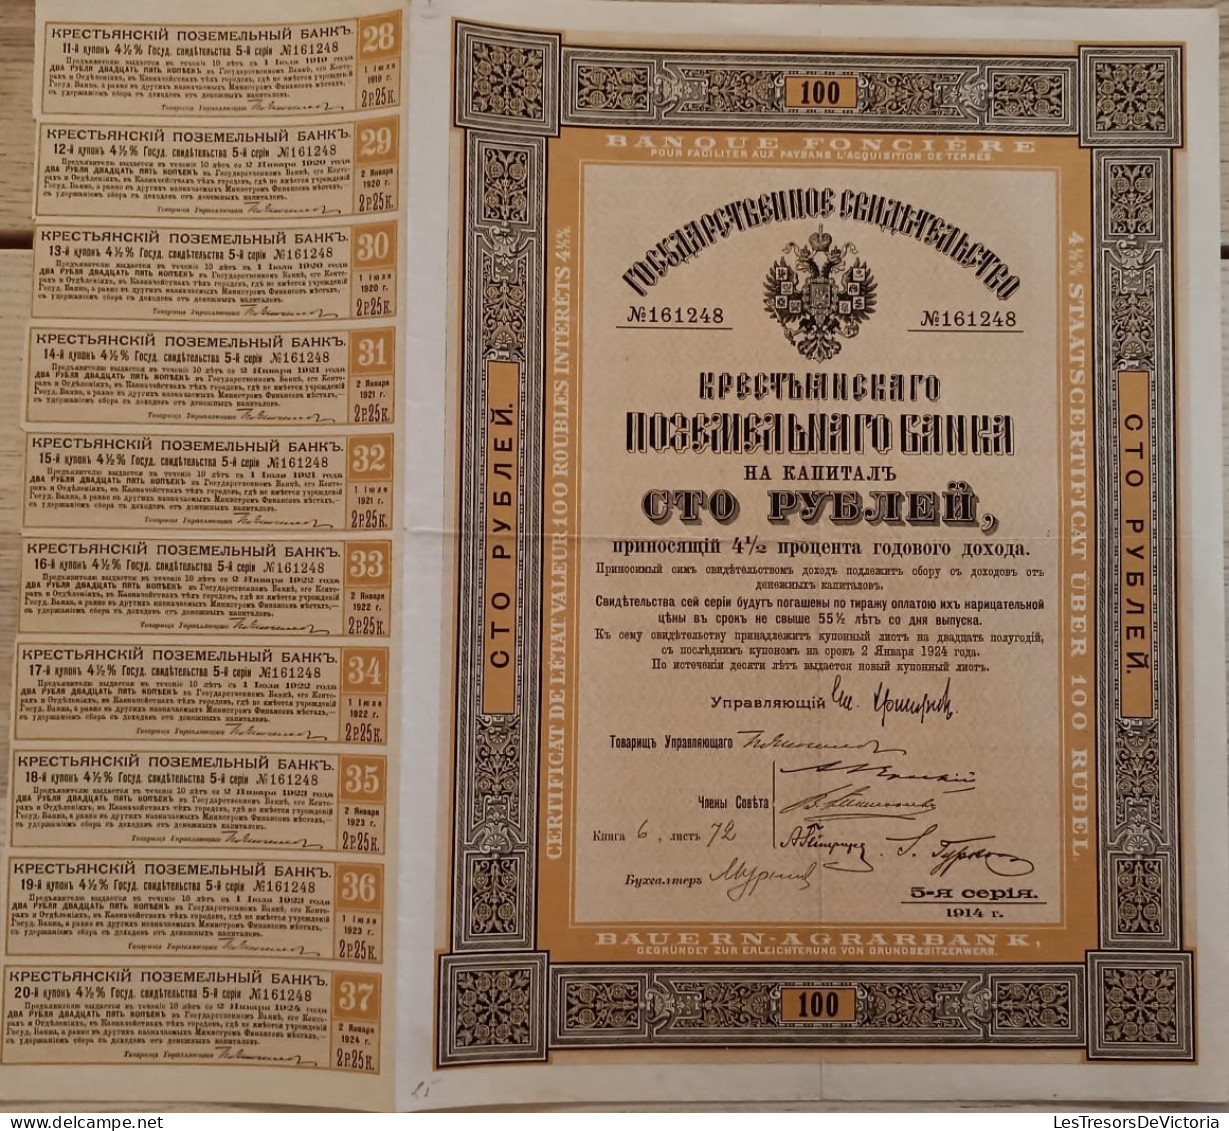 КРЕСТЬЯНСКІЙ ПОЗЕМЕЛЬНЫЙ БАНКЪ. 28
11-й купонъ 4½% Госуд. свидѣтельства 5-й серіи №161248
Предъявителю выдается въ теченіе 10 лѣтъ съ 1 Іюля 1919 года
ДВА РУБЛЯ ДВАДЦАТЬ ПЯТЬ КОПѢЕКЪ въ Государственномъ Банкѣ, его Конто-
рахъ и Отдѣленіяхъ, въ Казначействахъ тѣхъ городовъ, гдѣ не имѣется учрежденій
Госуд. Банка, а равно въ другихъ назначаемыхъ Министромъ Финансовъ мѣстахъ,—
съ удержаніемъ сбора съ доходовъ отъ денежныхъ капиталовъ.
Товарищъ Управляющаго
1 Іюля
1919 г.
2Р.25К.
КРЕСТЬЯНСКІЙ ПОЗЕМЕЛЬНЫЙ БАНКЪ. 29
12-й купонъ 4½% Госуд. свидѣтельства 5-й серіи №161248
Предъявителю выдается въ теченіе 10 лѣтъ со 2 Января 1920 года
ДВА РУБЛЯ ДВАДЦАТЬ ПЯТЬ КОПѢЕКЪ въ Государственномъ Банкѣ, его Конто-
рахъ и Отдѣленіяхъ, въ Казначействахъ тѣхъ городовъ, гдѣ не имѣется учрежденій
Госуд. Банка, а равно въ другихъ назначаемыхъ Министромъ Финансовъ мѣстахъ,—
съ удержаніемъ сбора съ доходовъ отъ денежныхъ капиталовъ.
Товарищъ Управляющаго
2 Января
1920 г.
2Р.25К.
КРЕСТЬЯНСКІЙ ПОЗЕМЕЛЬНЫЙ БАНКЪ. 30
13-й купонъ 4½% Госуд. свидѣтельства 5-й серіи №161248
Предъявителю выдается въ теченіе 10 лѣтъ съ 1 Іюля 1920 года
ДВА РУБЛЯ ДВАДЦАТЬ ПЯТЬ КОПѢЕКЪ въ Государственномъ Банкѣ, его Конто-
рахъ и Отдѣленіяхъ, въ Казначействахъ тѣхъ городовъ, гдѣ не имѣется учрежденій
Госуд. Банка, а равно въ другихъ назначаемыхъ Министромъ Финансовъ мѣстахъ,—
съ удержаніемъ сбора съ доходовъ отъ денежныхъ капиталовъ.
Товарищъ Управляющаго
1 Іюля
1920 г.
2Р.25К.
КРЕСТЬЯНСКІЙ ПОЗЕМЕЛЬНЫЙ БАНКЪ. 31
14-й купонъ 4½% Госуд. свидѣтельства 5-й серіи №161248
Предъявителю выдается въ теченіе 10 лѣтъ со 2 Января 1921 года
ДВА РУБЛЯ ДВАДЦАТЬ ПЯТЬ КОПѢЕКЪ въ Государственномъ Банкѣ, его Конто-
рахъ и Отдѣленіяхъ, въ Казначействахъ тѣхъ городовъ, гдѣ не имѣется учрежденій
Госуд. Банка, а равно въ другихъ назначаемыхъ Министромъ Финансовъ мѣстахъ,—
съ удержаніемъ сбора съ доходовъ отъ денежныхъ капиталовъ.
Товарищъ Управляющаго
2 Января
1921 г.
2Р.25К.
КРЕСТЬЯНСКІЙ ПОЗЕМЕЛЬНЫЙ БАНКЪ. 32
15-й купонъ 4½% Госуд. свидѣтельства 5-й серіи №161248
Предъявителю выдается въ теченіе 10 лѣтъ съ 1 Іюля 1921 года
ДВА РУБЛЯ ДВАДЦАТЬ ПЯТЬ КОПѢЕКЪ въ Государственномъ Банкѣ, его Конто-
рахъ и Отдѣленіяхъ, въ Казначействахъ тѣхъ городовъ, гдѣ не имѣется учрежденій
Госуд. Банка, а равно въ другихъ назначаемыхъ Министромъ Финансовъ мѣстахъ,—
съ удержаніемъ сбора съ доходовъ отъ денежныхъ капиталовъ.
Товарищъ Управляющаго
1 Іюля
1921 г.
2Р.25К.
КРЕСТЬЯНСКІЙ ПОЗЕМЕЛЬНЫЙ БАНКЪ. 33
16-й купонъ 4½% Госуд. свидѣтельства 5-й серіи №161248
Предъявителю выдается въ теченіе 10 лѣтъ со 2 Января 1922 года
ДВА РУБЛЯ ДВАДЦАТЬ ПЯТЬ КОПѢЕКЪ въ Государственномъ Банкѣ, его Конто-
рахъ и Отдѣленіяхъ, въ Казначействахъ тѣхъ городовъ, гдѣ не имѣется учрежденій
Госуд. Банка, а равно въ другихъ назначаемыхъ Министромъ Финансовъ мѣстахъ,—
съ удержаніемъ сбора съ доходовъ отъ денежныхъ капиталовъ.
Товарищъ Управляющаго
2 Января
1922 г.
2Р.25К.
КРЕСТЬЯНСКІЙ ПОЗЕМЕЛЬНЫЙ БАНКЪ. 34
17-й купонъ 4½% Госуд. свидѣтельства 5-й серіи №161248
Предъявителю выдается въ теченіе 10 лѣтъ съ 1 Іюля 1922 года
ДВА РУБЛЯ ДВАДЦАТЬ ПЯТЬ КОПѢЕКЪ въ Государственномъ Банкѣ, его Конто-
рахъ и Отдѣленіяхъ, въ Казначействахъ тѣхъ городовъ, гдѣ не имѣется учрежденій
Госуд. Банка, а равно въ другихъ назначаемыхъ Министромъ Финансовъ мѣстахъ,—
съ удержаніемъ сбора съ доходовъ отъ денежныхъ капиталовъ.
Товарищъ Управляющаго
1 Іюля
1922 г.
2Р.25К.
КРЕСТЬЯНСКІЙ ПОЗЕМЕЛЬНЫЙ БАНКЪ. 35
18-й купонъ 4½% Госуд. свидѣтельства 5-й серіи №161248
Предъявителю выдается въ теченіе 10 лѣтъ со 2 Января 1923 года
ДВА РУБЛЯ ДВАДЦАТЬ ПЯТЬ КОПѢЕКЪ въ Государственномъ Банкѣ, его Конто-
рахъ и Отдѣленіяхъ, въ Казначействахъ тѣхъ городовъ, гдѣ не имѣется учрежденій
Госуд. Банка, а равно въ другихъ назначаемыхъ Министромъ Финансовъ мѣстахъ,—
съ удержаніемъ сбора съ доходовъ отъ денежныхъ капиталовъ.
Товарищъ Управляющаго
2 Января
1923 г.
2Р.25К.
КРЕСТЬЯНСКІЙ ПОЗЕМЕЛЬНЫЙ БАНКЪ. 36
19-й купонъ 4½% Госуд. свидѣтельства 5-й серіи №161248
Предъявителю выдается въ теченіе 10 лѣтъ съ 1 Іюля 1923 года
ДВА РУБЛЯ ДВАДЦАТЬ ПЯТЬ КОПѢЕКЪ въ Государственномъ Банкѣ, его Конто-
рахъ и Отдѣленіяхъ, въ Казначействахъ тѣхъ городовъ, гдѣ не имѣется учрежденій
Госуд. Банка, а равно въ другихъ назначаемыхъ Министромъ Финансовъ мѣстахъ,—
съ удержаніемъ сбора съ доходовъ отъ денежныхъ капиталовъ.
Товарищъ Управляющаго
1 Іюля
1923 г.
2Р.25К.
КРЕСТЬЯНСКІЙ ПОЗЕМЕЛЬНЫЙ БАНКЪ. 37
20-й купонъ 4½% Госуд. свидѣтельства 5-й серіи №161248
Предъявителю выдается въ теченіе 10 лѣтъ со 2 Января 1924 года
ДВА РУБЛЯ ДВАДЦАТЬ ПЯТЬ КОПѢЕКЪ въ Государственномъ Банкѣ, его Конто-
рахъ и Отдѣленіяхъ, въ Казначействахъ тѣхъ городовъ, гдѣ не имѣется учрежденій
Госуд. Банка, а равно въ другихъ назначаемыхъ Министромъ Финансовъ мѣстахъ,—
съ удержаніемъ сбора съ доходовъ отъ денежныхъ капиталовъ.
Товарищъ Управляющаго
2 Января
1924 г.
2Р.25К.
100
BANQUE FONCIÈRE
POUR FACILITER AUX PAYSANS L'ACQUISITION DE TERRES.
CERTIFICAT DE L'ÉTAT VALEUR 100 ROUBLES INTÉRÊTS 4½%
4½% STAATSCERTIFICAT ÜBER 100 RUBEL
СТО РУБЛЕЙ.
СТО РУБЛЕЙ.
ГОСУДАРСТВЕННОЕ СВИДѢТЕЛЬСТВО
№161248
№161248
КРЕСТЬЯНСКАГО
ПОЗЕМЕЛЬНАГО БАНКА
НА КАПИТАЛЪ
СТО РУБЛЕЙ,
приносящій 4½ процента годового дохода.
Приносимый симъ свидѣтельствомъ доходъ подлежитъ сбору съ доходовъ отъ
денежныхъ капиталовъ.
Свидѣтельства сей серіи будутъ погашены по тиражу оплатою ихъ нарицательной
цѣны въ срокъ не свыше 55½ лѣтъ со дня выпуска.
Къ сему свидѣтельству принадлежитъ купонный листъ на двадцать полугодій,
съ послѣднимъ купономъ на срокъ 2 Января 1924 года.
По истеченіи десяти лѣтъ выдается новый купонный листъ.
Управляющій
Товарищъ Управляющаго
Члены Совѣта
Книга 6, листъ 72
Бухгалтеръ
5-я серія.
1914 г.
BAUERN-AGRARBANK,
GEGRÜNDET ZUR ERLEICHTERUNG VON GRUNDBESITZERWERB.
100
LesTresorsDeVictoria